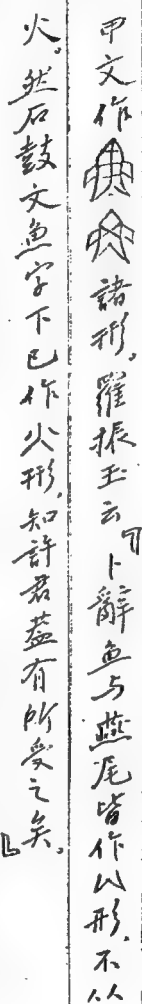 甲文作諸形。羅振玉云『卜辭魚与燕尾皆作山形，不从
火。然石鼓文魚字下已作火形，知許君蓋有所受之矣。』